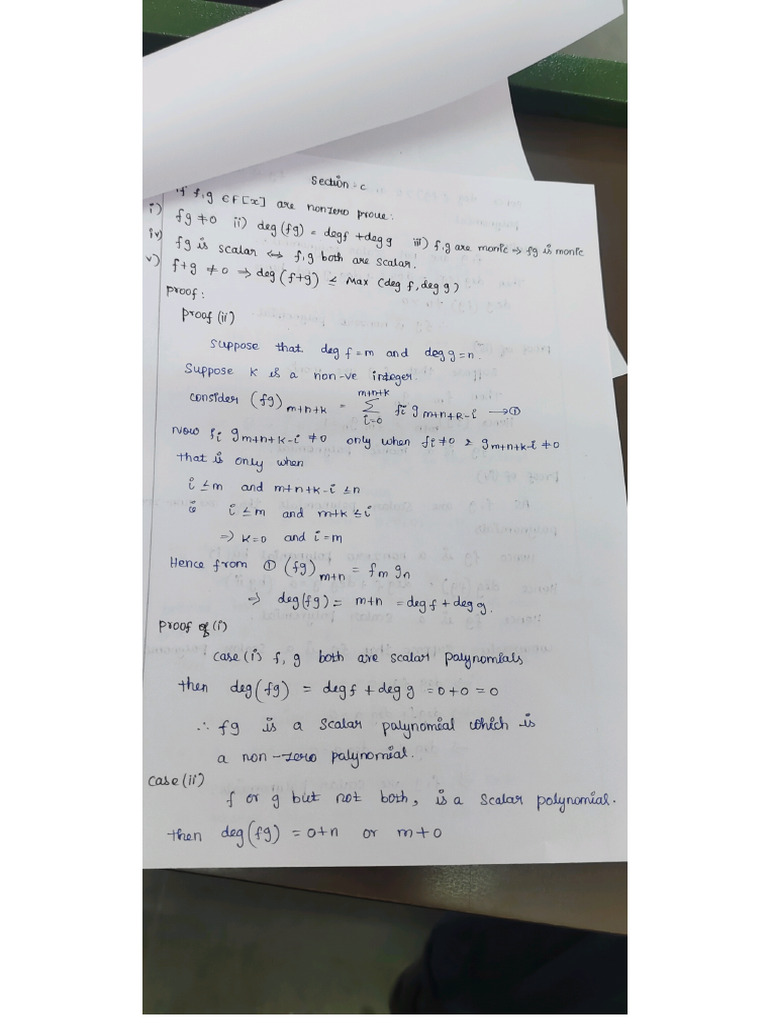 Section: c
If f,g ∈ F[x] are nonzero prove:
i) fg ≠ 0 ii) deg(fg) = deg f + deg g iii) f,g are monic ⇒ fg is monic
iv) fg is scalar ⇔ f,g both are scalar.
v) f+g ≠ 0 ⇒ deg(f+g) ≤ Max (deg f, deg g)
Proof:
Proof (ii)
Suppose that deg f = m and deg g = n.
Suppose K is a non-ve integer.
consider (fg)_{m+n+k} = \sum_{i=0}^{m+n+k} f_i g_{m+n+k-i} → ①
Now f_i g_{m+n+k-i} ≠ 0 only when f_i ≠ 0 & g_{m+n+k-i} ≠ 0
that is only when
i ≤ m and m+n+k-i ≤ n
ie i ≤ m and m+k ≤ i
⇒ k=0 and i=m
Hence from ① (fg)_{m+n} = f_m g_n
⇒ deg(fg) = m+n = deg f + deg g.
Proof of (i)
Case (i) f, g both are scalar palynomials
then deg(fg) = deg f + deg g = 0+0 = 0
∴ fg is a scalar palynomial which is
a non-zero palynomial.
Case (ii)
f or g but not both, is a scalar polynomial.
then deg(fg) = 0+n or m+0